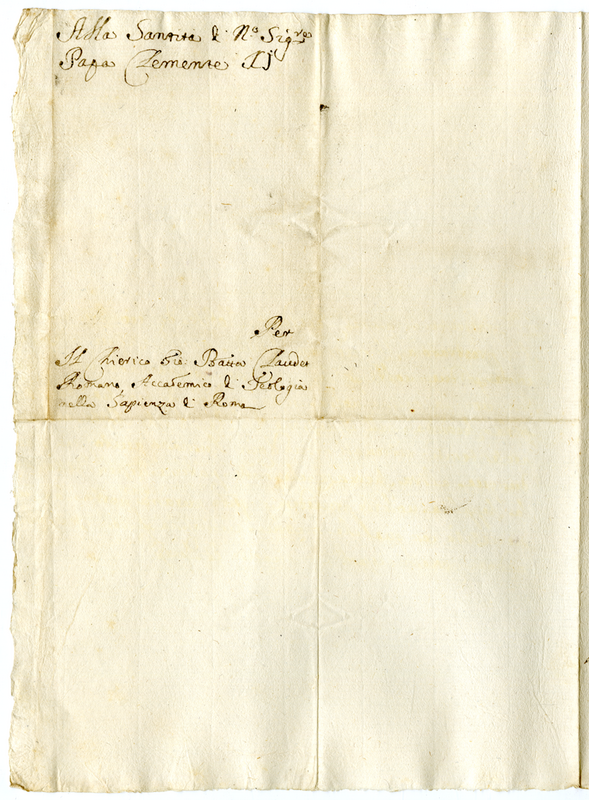 Alla Santità di N.º Sig.re
Papa Clemente XIj
Per
Il Chierico Gio: Batta Claudet
Romano Accademico di Teologia
nella Sapienza di Roma